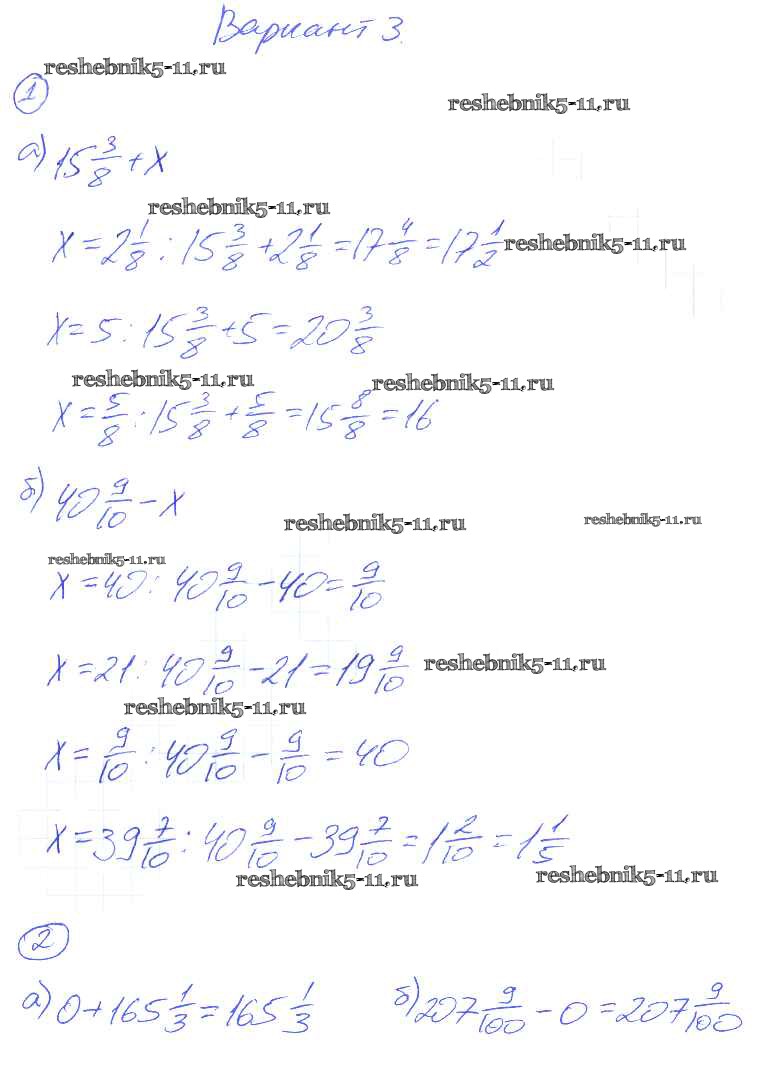 Вариант 3.
reshebnik5-11.ru
1
reshebnik5-11.ru
а) 15 3/8 + x
reshebnik5-11.ru
x = 2 1/8 : 15 3/8 + 2 1/8 = 17 4/8 = 17 1/2
reshebnik5-11.ru
x = 5 : 15 3/8 + 5 = 20 3/8
reshebnik5-11.ru reshebnik5-11.ru
x = 5/8 : 15 3/8 + 5/8 = 15 8/8 = 16
б) 40 9/10 - x
reshebnik5-11.ru reshebnik5-11.ru
reshebnik5-11.ru
x = 40 : 40 9/10 - 40 = 9/10
x = 21 : 40 9/10 - 21 = 19 9/10
reshebnik5-11.ru
reshebnik5-11.ru
x = 9/10 : 40 9/10 - 9/10 = 40
x = 39 7/10 : 40 9/10 - 39 7/10 = 1 2/10 = 1 1/5
reshebnik5-11.ru reshebnik5-11.ru
2
а) 0 + 165 1/3 = 165 1/3 б) 207 9/100 - 0 = 207 9/100